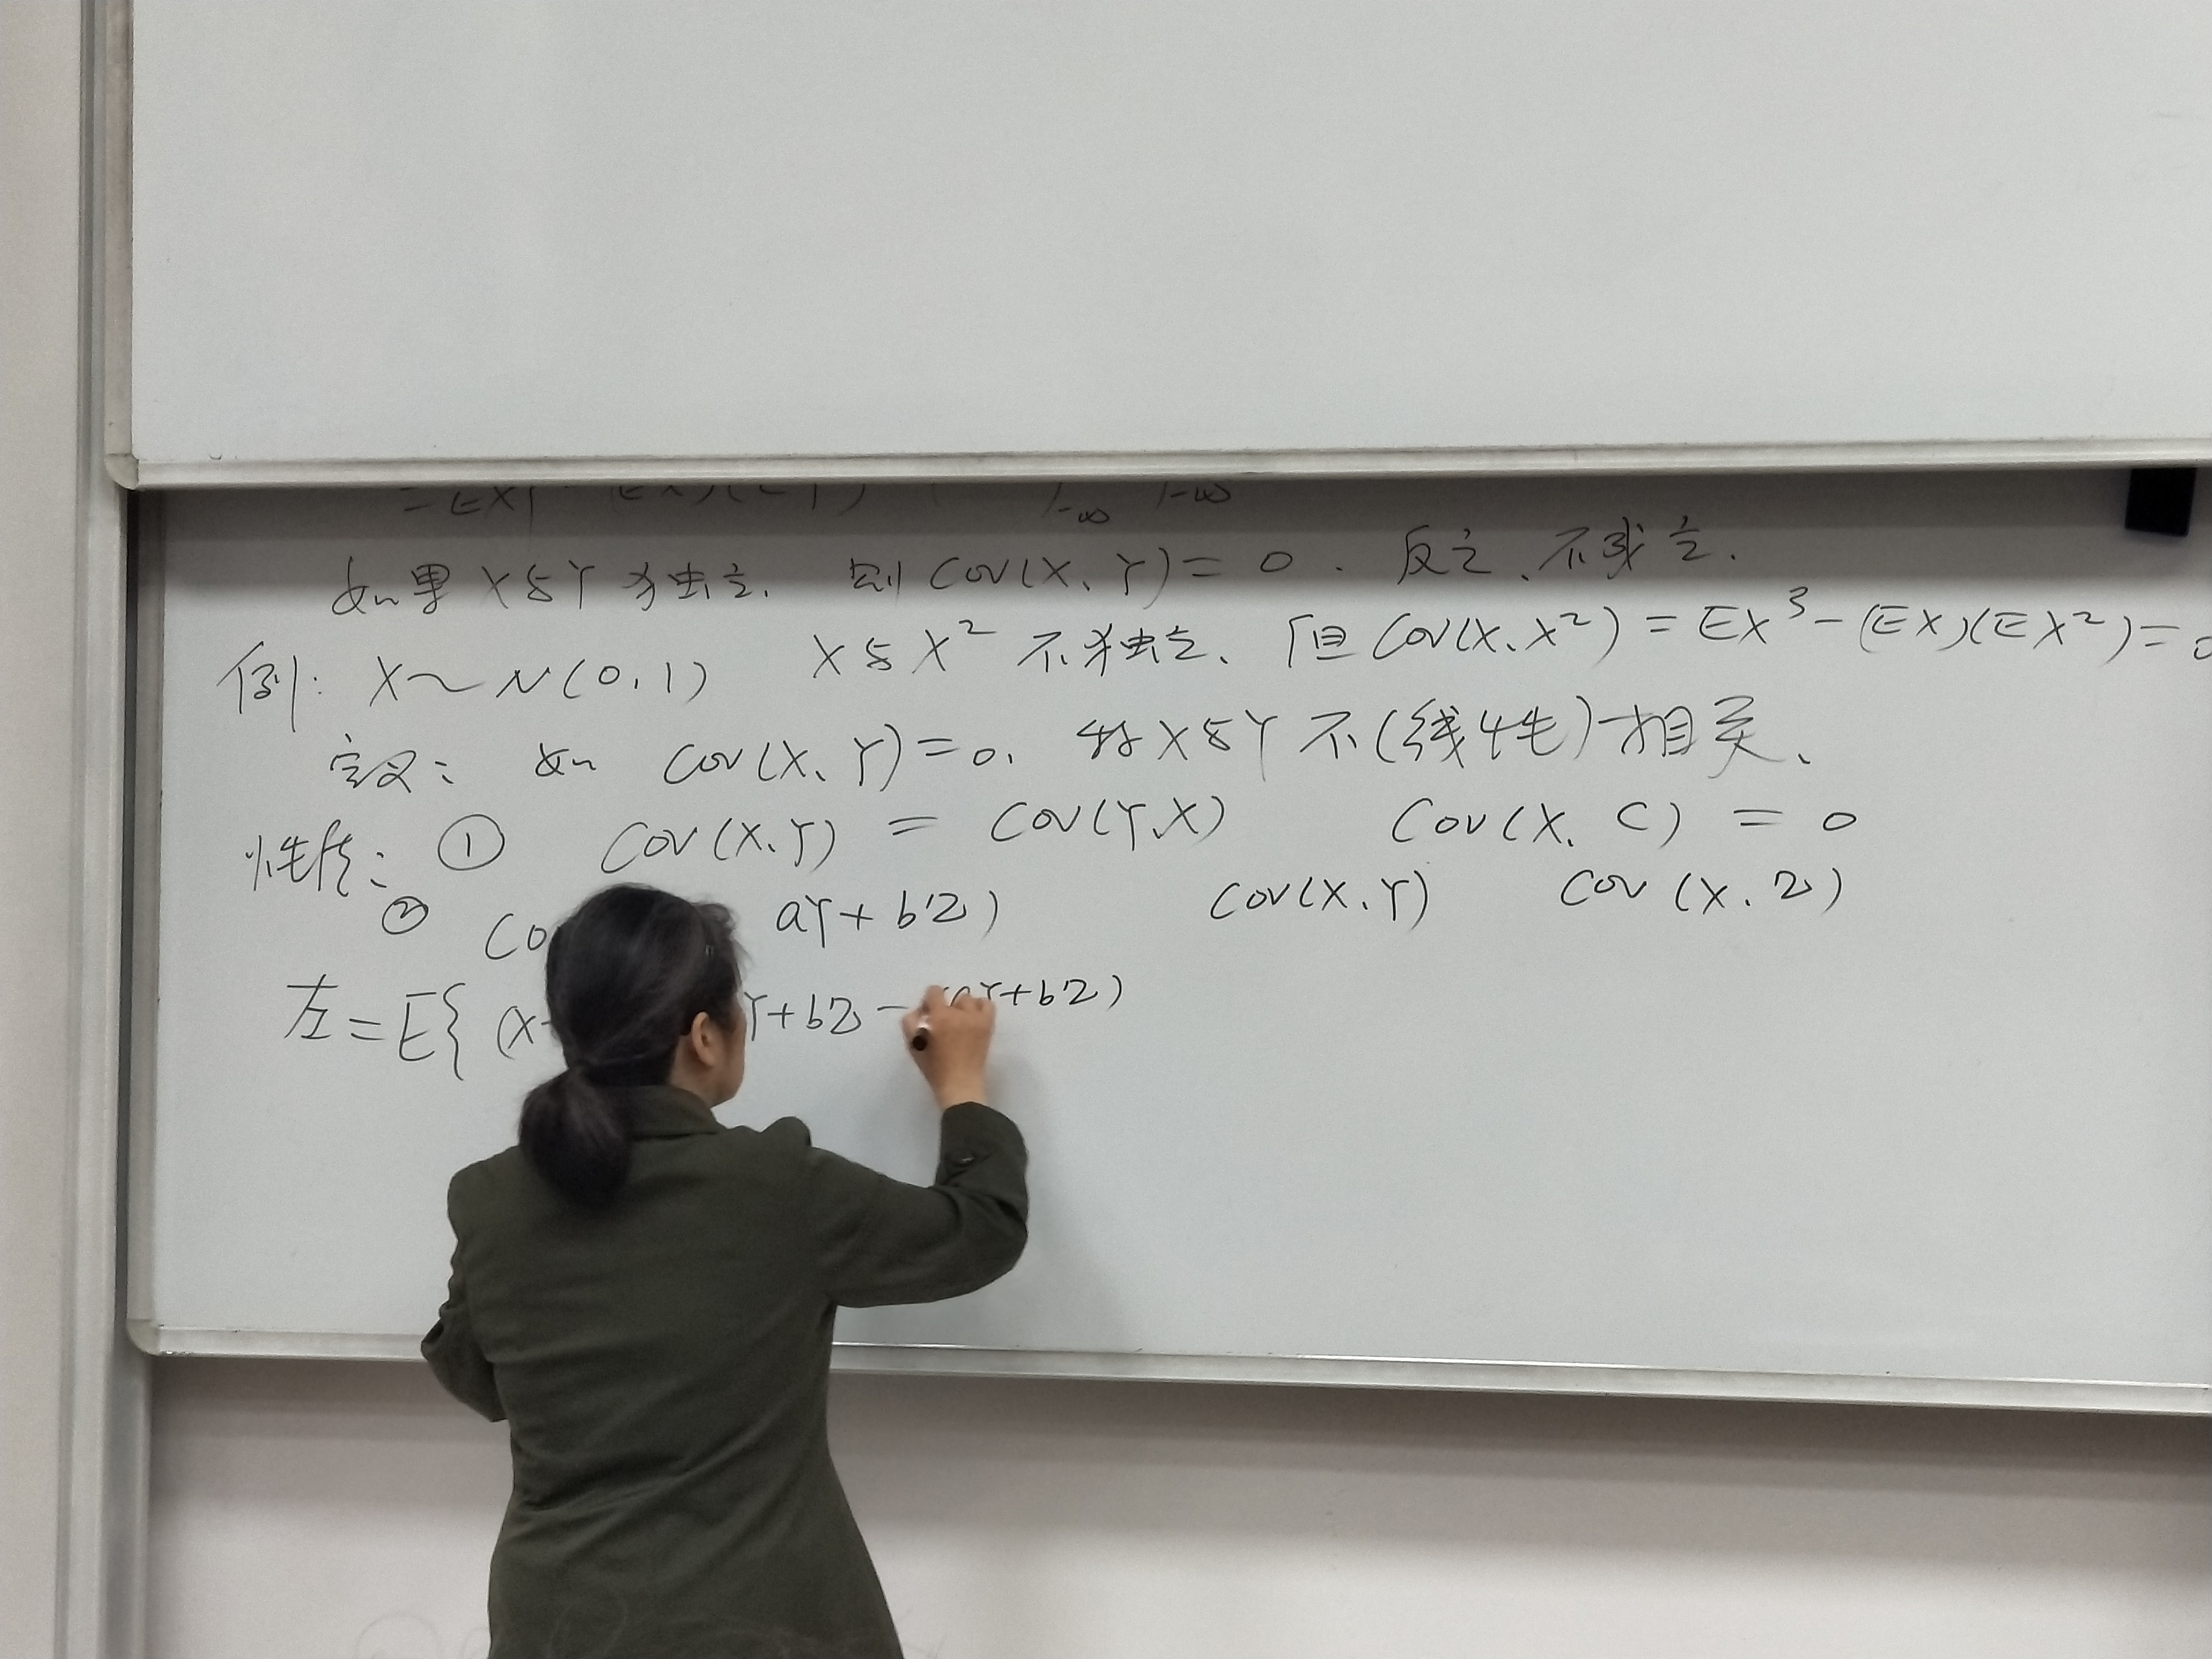 = EXY - (EX)(EY) ∫-∞ ∫-∞
如果 X与Y 独立. 则 COV(X、Y) = 0 . 反之、不成立.
例: X ~ N(0,1) X与X² 不独立、但 COV(X、X²) = EX³ - (EX)(EX²) = 0
定义: 如 COV(X、Y) = 0. 称X与Y 不(线性)相关、
性质: ① COV(X、Y) = COV(Y,X) COV(X、C) = 0
② CO aY + bZ) COV(X、Y) COV (X、Z)
左 = E{ (X- Y+bZ - aY+bZ)